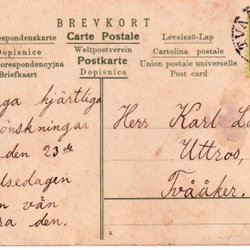 BREVKORT
respondenzkarte Carte Postale Levelező-Lap
Dopisnice Weltpostverein Cartolina postale
orespondencyjna Postkarte Union postale universelle
Briefkart Dopisnica Post card
ga hjärtliga
önskningar
den 23de
lsedagen
n vän
ra den.
Herr Karl La
Uttros,
Tvååker.
TVÅ
K